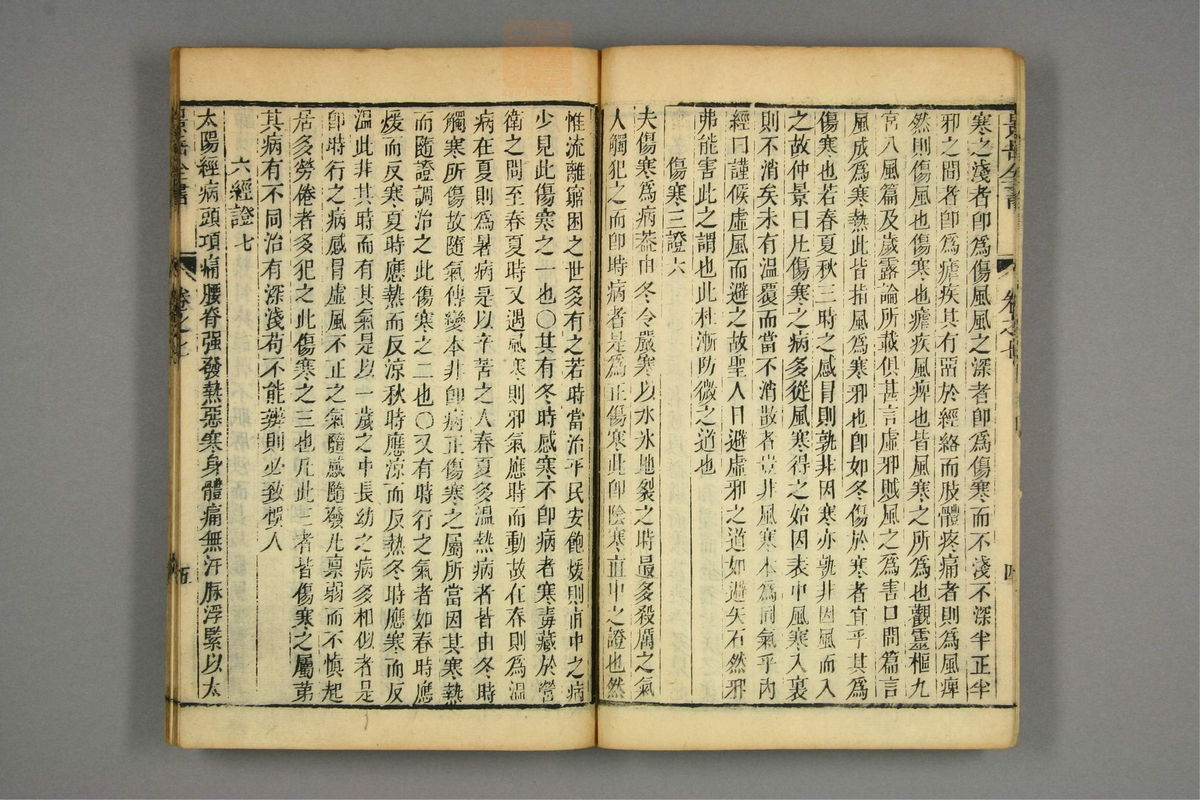 景岳全書
卷之七
四
寒之淺者卽爲傷風風之深者卽爲傷寒而不淺不深半正半
邪之間者卽爲瘧疾其有罶於經絡而肢體疼痛者則爲風痺
然則傷風也傷寒也瘧疾風痺也皆風寒之所爲也觀靈樞九
宮八風篇及歲露論所載俱甚言虛邪賊風之爲害口問篇言
風成爲寒熱此皆指風爲寒邪也卽如冬傷於寒者宜乎其爲
傷寒也若春夏秋三時之感冒則孰非因寒亦孰非因風而入
之故仲景曰凡傷寒之病多從風寒得之始因表中風寒入裏
則不消矣未有溫覆而當不消散者豈非風寒本爲同氣乎內
經曰謹候虛風而避之故聖人日避虛邪之道如避矢石然邪
弗能害此之謂也此杜漸防微之道也
傷寒三證六
夫傷寒爲病葢由冬令嚴寒以水氷地裂之時最多殺厲之氣
人觸犯之而卽時病者是爲正傷寒此卽陰寒直中之證也然
惟流離窮困之世多有之若時當治平民安飽煖則直中之病
少見此傷寒之一也〇其有冬時感寒不卽病者寒毒藏於營
衛之間至春夏時又遇風寒則邪氣應時而動故在春則爲溫
病在夏則爲暑病是以辛苦之人春夏多溫熱病者皆由冬時
觸寒所傷故隨氣傳變本非卽病正傷寒之屬所當因其寒熱
而隨證調治之此傷寒之二也〇又有時行之氣者如春時應
煖而反寒夏時應熱而反涼秋時應涼而反熱冬時應寒而反
溫此非其時而有其氣是以一歲之中長幼之病多相似者是
卽時行之病感冒虛風不正之氣隨感隨發凡禀弱而不慎起
居多勞倦者多犯之此傷寒之三也凡此三者皆傷寒之屬第
其病有不同治有深淺苟不能辨則必致悞人
六經證七
太陽經病頭項痛腰脊强發熱惡寒身體痛無汗脉浮緊以太
景岳全書
卷之七
五